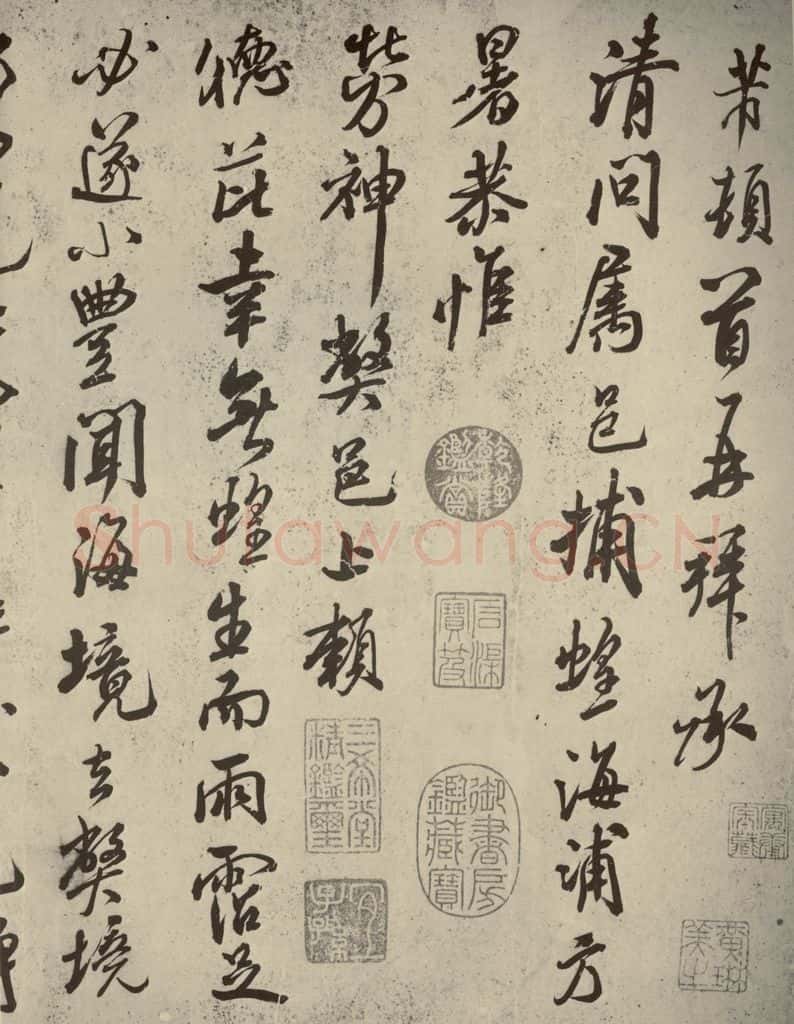 芾頓首再拜承
清問属邑捕蝗海浦方
暑恭惟
勞神弊邑上賴
德芘幸無蝗生而雨霑足
必遂小豐聞海境去弊境
乾隆鑑賞
石渠寶笈
御書房鑑藏寶
三希堂精鑑璽
宜子孫
黃琳美之
Shufawang.CN